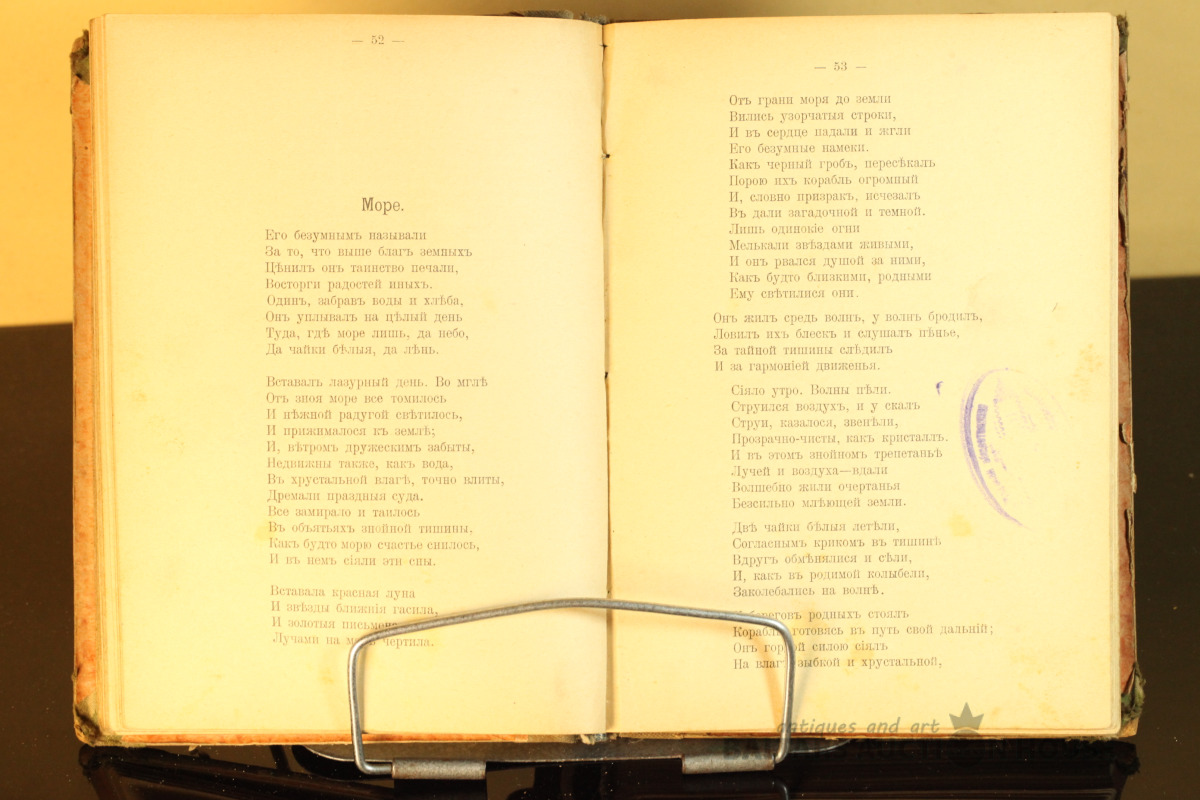 — 52 —
Море.
Его безумнымъ называли
За то, что выше благъ земныхъ
Цѣнилъ онъ таинство печали,
Восторги радостей иныхъ.
Одинъ, забравъ воды и хлѣба,
Онъ уплывалъ на цѣлый день
Туда, гдѣ море лишь, да небо,
Да чайки бѣлыя, да лѣнь.
Вставалъ лазурный день. Во мглѣ
Отъ зноя море все томилось
И нѣжной радугой свѣтилось,
И прижималося къ землѣ;
И, вѣтромъ дружескимъ забыты,
Недвижны также, какъ вода,
Въ хрустальной влагѣ, точно влиты,
Дремали праздныя суда.
Все замирало и таилось
Въ объятьяхъ знойной тишины,
Какъ будто морю счастье снилось,
И въ немъ сіяли эти сны.
Вставала красная луна
И звѣзды ближнія гасила,
И золотыя письмена
Лучами на чертила.
— 53 —
Отъ грани моря до земли
Вились узорчатыя строки,
И въ сердце падали и жгли
Его безумные намеки.
Какъ черный гробъ, пересѣкалъ
Порою ихъ корабль огромный
И, словно призракъ, исчезалъ
Въ дали загадочной и темной.
Лишь одинокіе огни
Мелькали звѣздами живыми,
И онъ рвался душой за ними,
Какъ будто близкими, родными
Ему свѣтилися они.
Онъ жилъ средь волнъ, у волнъ бродилъ,
Ловилъ ихъ блескъ и слушалъ пѣнье,
За тайной тишины слѣдилъ
И за гармоніей движенья.
Сіяло утро. Волны пѣли.
Струился воздухъ, и у скалъ
Струи, казалося, звенѣли,
Прозрачно-чисты, какъ кристаллъ.
И въ этомъ знойномъ трепетаньѣ
Лучей и воздуха—вдали
Волшебно жили очертанья
Безсильно млѣющей земли.
Двѣ чайки бѣлыя летѣли,
Согласнымъ крикомъ въ тишинѣ
Вдругъ обмѣнялися и сѣли,
И, какъ въ родимой колыбели,
Заколебались на волнѣ.
У береговъ родныхъ стоялъ
Корабль, готовясь въ путь свой дальній;
Онъ гордой силою сіялъ
На влагѣ зыбкой и хрустальной,
antiques and art